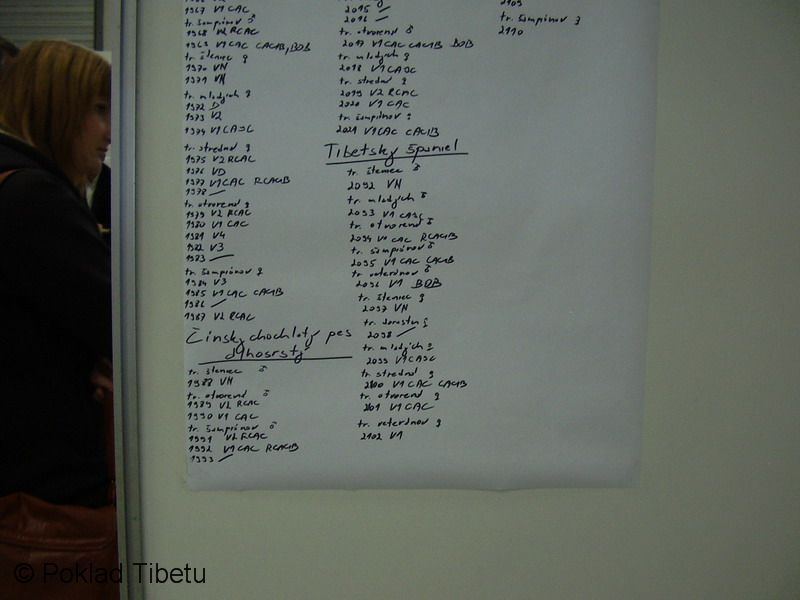 1967 V1 CAC
tr. šampiónov ♂
1968 V2 RCAC
1969 V1 CAC CACIB, BOB
tr. šteniec ♀
1970 VN
1971 VN
tr. mladých ♀
1972 D
1973 V2
1974 V1 CAJC
tr. stredná ♀
1975 V2 RCAC
1976 VD
1977 V1 CAC RCACIB
1978 —
tr. otvorená ♀
1979 V2 RCAC
1980 V1 CAC
1981 V4
1982 V3
1983 —
tr. šampiónov ♀
1984 V3
1985 V1 CAC CACIB
1986 —
1987 V2 RCAC
Čínsky chochlatý pes
dlhosrstý
tr. šteniec ♂
1988 VN
tr. otvorená ♂
1989 V2 RCAC
1990 V1 CAC
tr. šampiónov ♂
1991 V2 RCAC
1992 V1 CAC RCACIB
1993 —
2015 —
2016 —
tr. otvorená ♂
2017 V1 CAC CACIB BOB
tr. mladých ♀
2018 V1 CAJC
tr. stredná ♀
2019 V2 RCAC
2020 V1 CAC
tr. šampiónov ♀
2021 V1 CAC CACIB
Tibetský španiel
tr. šteniec ♂
2092 VN
tr. mladých ♂
2093 V1 CAJC
tr. otvorená ♂
2094 V1 CAC RCACIB
tr. šampiónov ♂
2095 V1 CAC CACIB
tr. veteránov ♂
2096 V1 BOB
tr. šteniec ♀
2097 VN
tr. dorastu ♀
2098 —
tr. mladých ♀
2099 V1 CAJC
tr. stredná ♀
2100 V1 CAC CACIB
tr. otvorená ♀
2101 V1 CAC
tr. veteránov ♀
2102 V1
2109
tr. šampiónov ♀
2110
© Poklad Tibetu